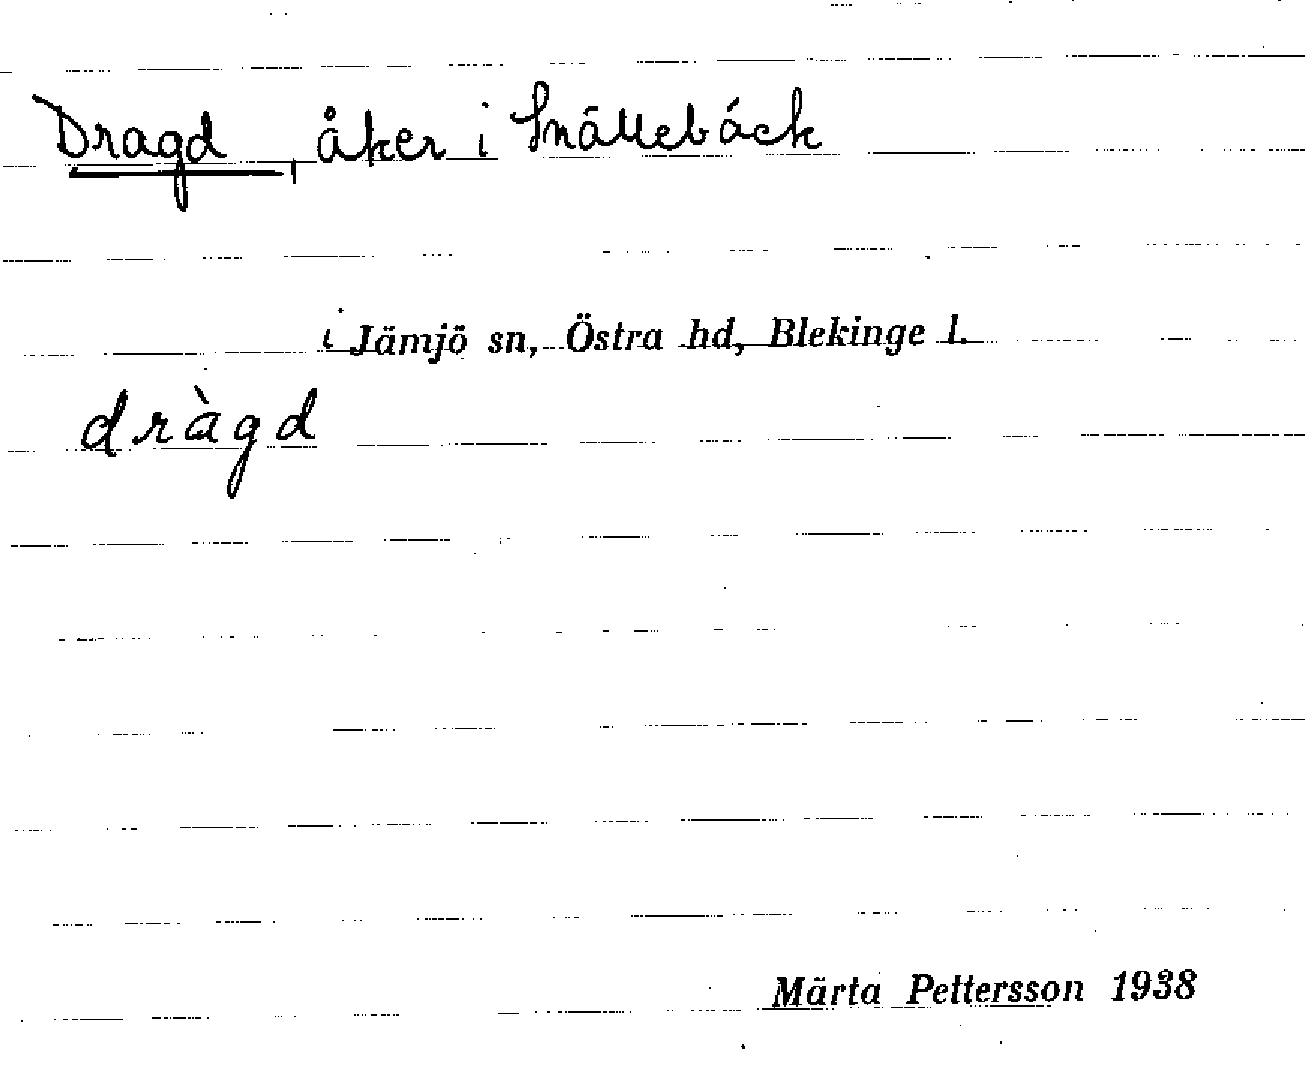 Dragd, åker i Snällebäck
i Jämjö sn, Östra hd, Blekinge l.
dràgd
Märta Pettersson 1938